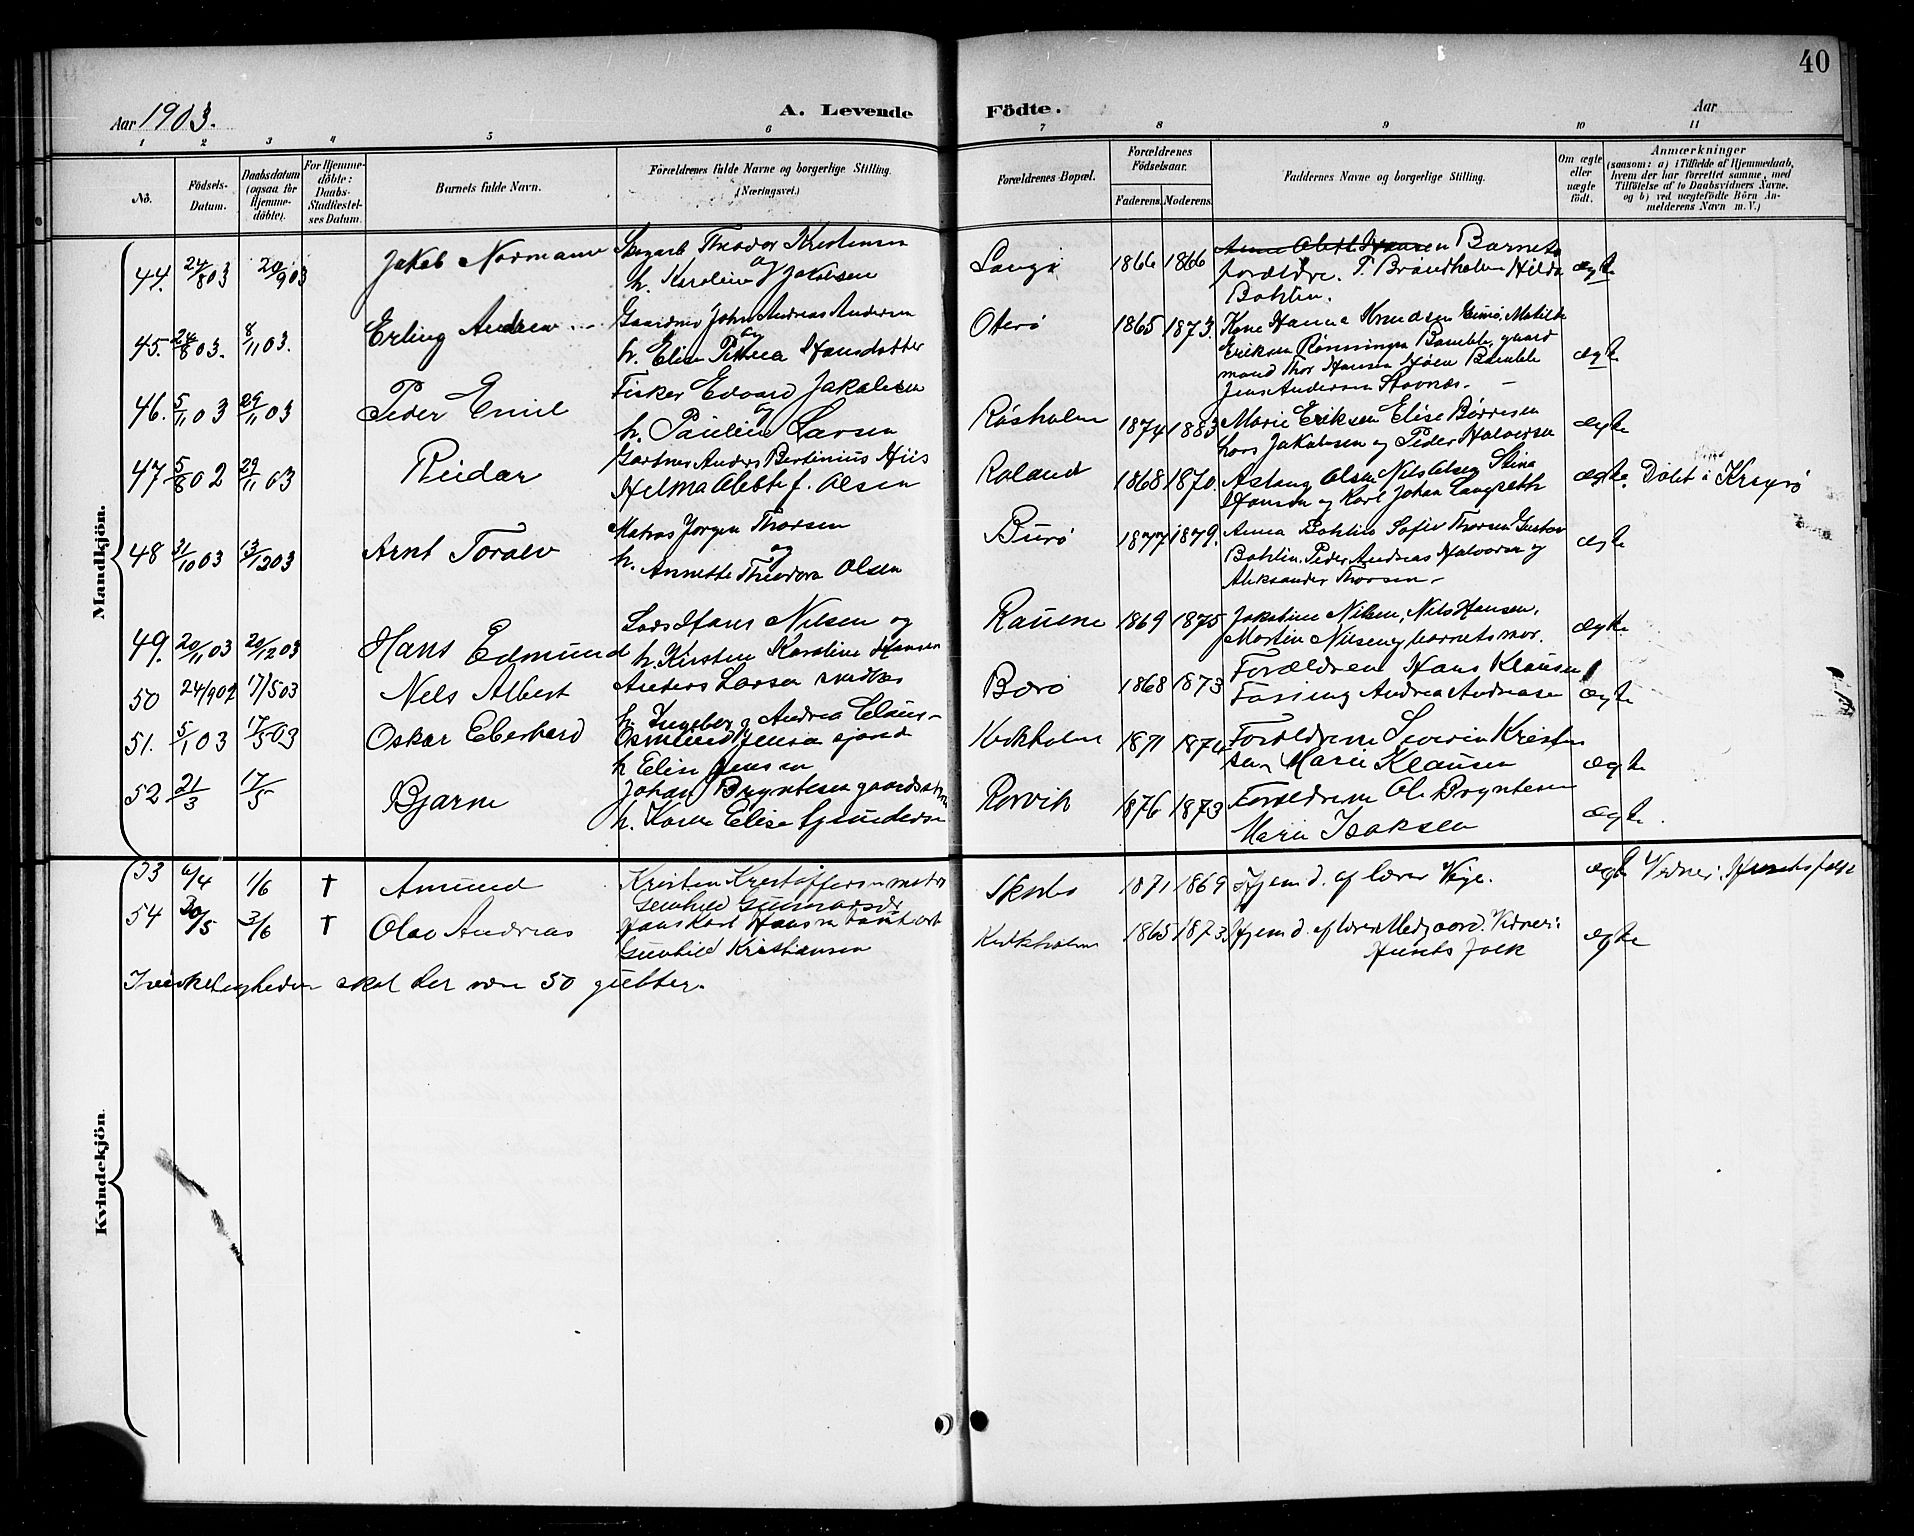 40
Aar 1903.
A. Levende Födte.
Aar
1 2 3 4 5 6 7 8 9 10 11
No.
Födsels-Datum.
Daabsdatum (ogsaa for Hjemmedöbte).
For Hjemmedöbte: Daabs-Stadfæstelses Datum.
Barnets fulde Navn.
Forældrenes fulde Navne og borgerlige Stilling. (Næringsvei.)
Forældrenes Bopæl.
Forældrenes Födselsaar.
Faderens. Moderens.
Faddernes Navne og borgerlige Stilling.
Om ægte eller uægte födt.
Anmærkninger
(saasom: a) i Tilfælde af Hjemmedaab, hvem der har forrettet samme, med Tilföielse af to Daabsvidners Navne. og b) ved uægtefödte Börn Anmelderens Navn m. V.)
Mandkjön.
44. 24/8 03 20/9 03 Jakob Normann Theodor Kristensen og h. Karoline Jakobsen Langø 1866 1866 Barnets forældre. T. Brøndholm Hilda Bohlin. ægte
45. 24/8 03. 8/11 03. Erling Andrew Gaardmr John Andreas Andersen og h. Elise Petrea Hansdatter Oterø 1865 1873. Kone Hanna Knudsen Matilde Eriksen Rønningen Bamble, gaardmand Thor Hansen Bamble Jens Andersen Stavnæs. - ægte
46. 5/11 03 29/11 03 Peder Emil Fisker Edvard Jakobsen og h. Pauline Larsen Røsholm 1874 1883 Marie Eriksen Elise Børresen Lars Jakobsen og Peder Halvorsen ægte
47 5/8 02 29/11 03 Reidar Gartner Anders Bertinius Hiis Helma Abette f. Olsen Roland 1868 1870. Aslaug Olsen Nils Olsen Stina Hansen og Karl Johan Langseth ægte. Døbt i Kragerø
48 31/10 03 13/12 03 Arnt Toralv Matros Jørgen Thorsen og h. Annette Theodora Olsen Burø 1877 1879. Anna Bohlin Sofie Thorsen Gustav Bohlin. Peder Andreas Halvorsen og Aleksander Thorsen - ægte
49. 20/11 03 20/12 03 Hans Edmund Lods Hans Nilsen og h. Kirstine Karoline Hansen Rauene 1869 1875 Jakobine Nilsen, Nils Hansen, Martin Nilsen og barnets mor. ægte
50 24/9 02 17/5 03 Nels Albert Anders Larsen h. Ingeborg Andrea Claus- Barø 1868 1873 Forældrene Hans Klausen Andrea Andreasen ægte
51. 5/1 03 17/5 03 Oskar Eberhard Osmund Jensen h Elise Jensen Kirkholm 1871 1874 Forældrene Severin Kristensen, Marie Klausen ægte
52 21/3 17/5 Bjarne Johan Bryntesen h. Karen Elise Gundersen Rørvik 1876 1873 Forældrene Ole Bryntesen Marie Isaksen ægte.
53 6/4 1/6 † Amund Kristen Kristoffersen Gunhild 1871 1869 Hjemd. af lærer Veje. ægte Vidner: Husets folk
54 20/5 3/6 † Olav Andreas Hans Karl Hansen Gunhild Kristiansen Kirkholm 1865 1873. Hjemd. af lærer Medgaard. Vidner: Husets folk ægte
I virkeligheden skal der være 50 gutter.
Kvindekjön.